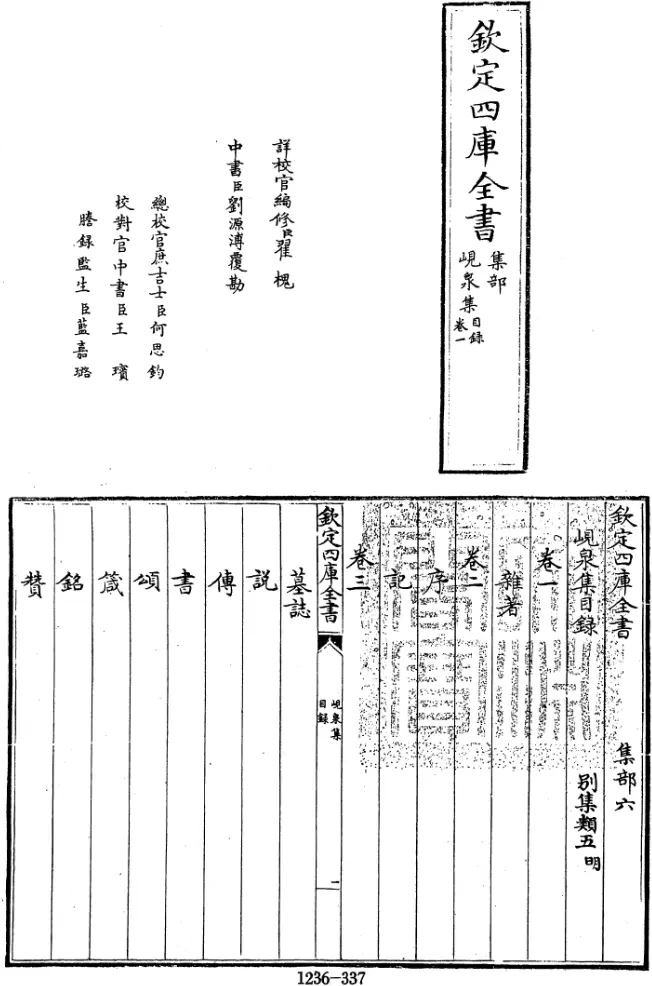 欽定四庫全書
集部
峴泉集
目錄
卷一
詳校官編修臣翟槐
中書臣劉源溥覆勘
總校官庶吉士臣何思鈞
校對官中書臣王璸
謄錄監生臣藍嘉璐
欽定四庫全書 集部六
峴泉集目錄 別集類五 明
卷一
雜著
卷二
序
記
卷三
欽定四庫全書
峴泉集
目錄
一
墓誌
説
傳
書
頌
箴
銘
贊
1236-337